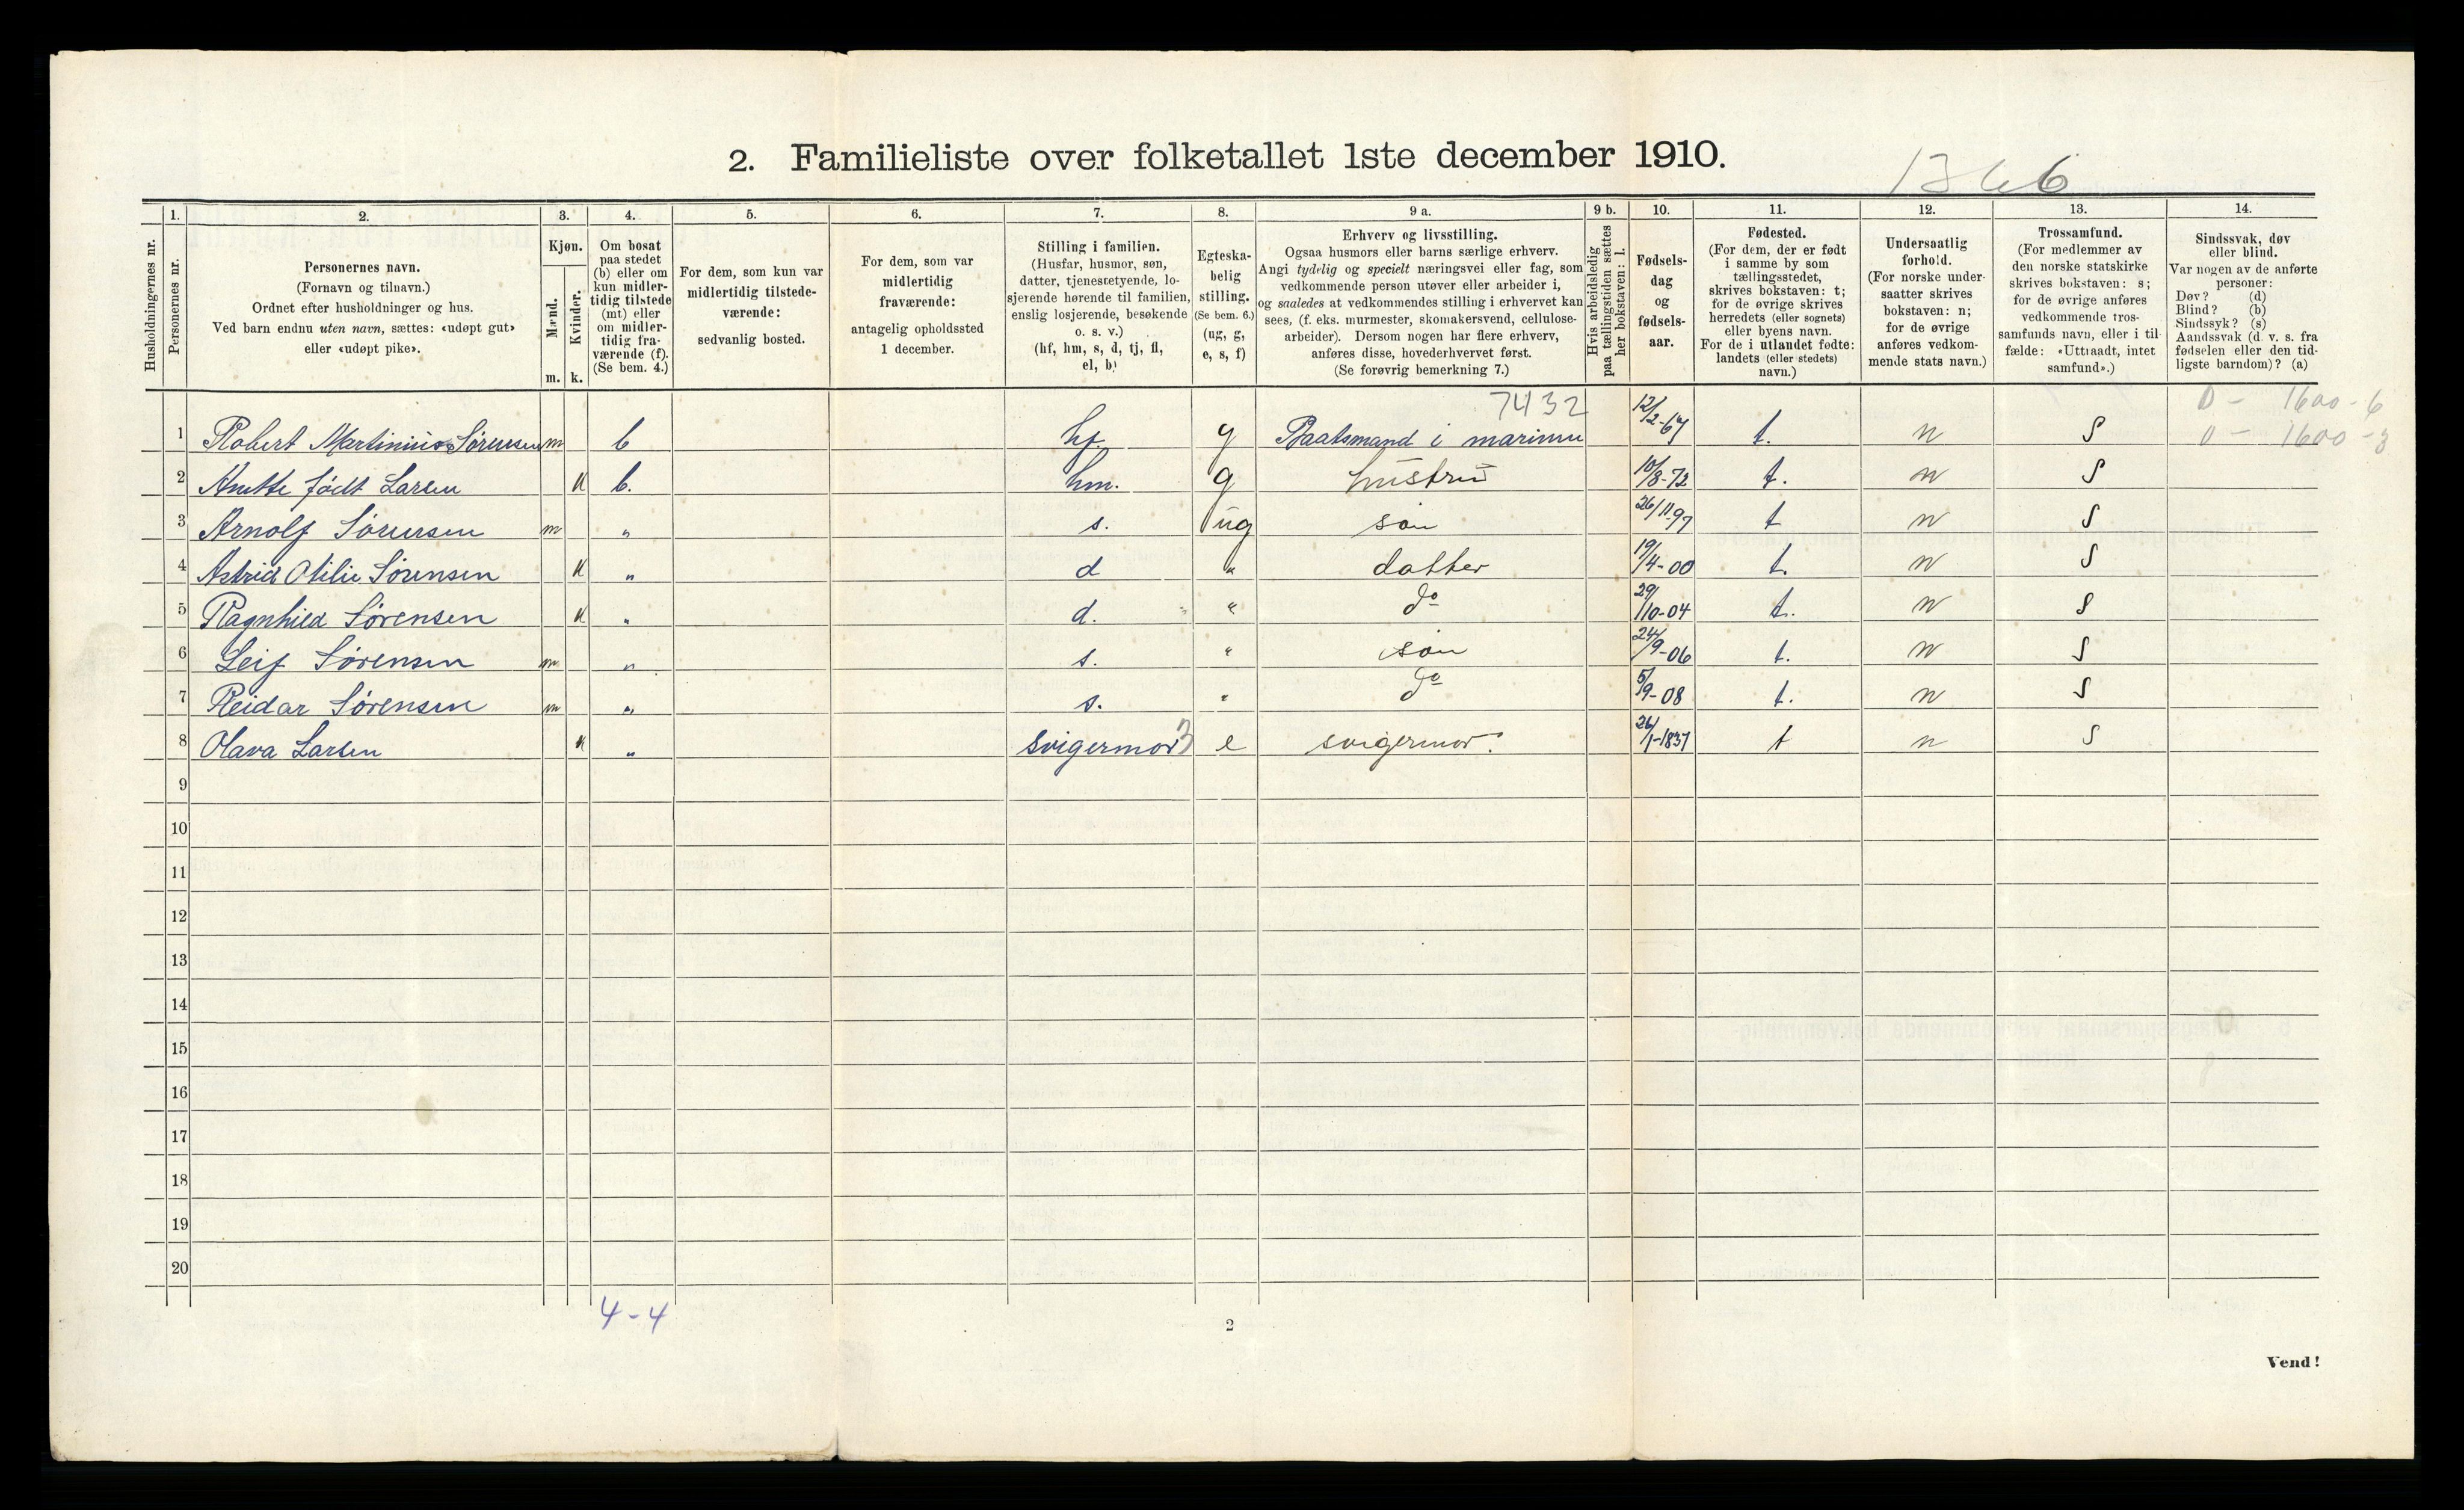 2. Familieliste over folketallet 1ste december 1910.
1366
1. 2. 3. 4. 5. 6. 7. 8. 9 a. 9 b. 10. 11. 12. 13. 14.
Husholdningernes nr.
Personernes nr.
Personernes navn.
(Fornavn og tilnavn.)
Ordnet efter husholdninger og hus.
Ved barn endnu uten navn, sættes: «udøpt gut»
eller «udøpt pike».
Kjøn.
Mænd.
Kvinder.
m. k.
Om bosat
paa stedet
(b) eller om
kun midler-
tidig tilstede
(mt) eller
om midler-
tidig fra-
værende (f).
(Se bem. 4.)
For dem, som kun var
midlertidig tilstede-
værende:
sedvanlig bosted.
For dem, som var
midlertidig
fraværende:
antagelig opholdssted
1 december.
Stilling i familien.
(Husfar, husmor, søn,
datter, tjenestetyende, lo-
sjerende hørende til familien,
enslig losjerende, besøkende
o. s. v.)
(hf, hm, s, d, tj, fl,
el, b)
Egteska-
belig
stilling.
(Se bem. 6.)
(ug, g,
e, s, f)
Erhverv og livsstilling.
Ogsaa husmors eller barns særlige erhverv.
Angi tydelig og specielt næringsvei eller fag, som
vedkommende person utøver eller arbeider i,
og saaledes at vedkommendes stilling i erhvervet kan
sees, (f. eks. murmester, skomakersvend, cellulose-
arbeider). Dersom nogen har flere erhverv,
anføres disse, hovederhvervet først.
(Se forøvrig bemerkning 7.)
Hvis arbeidsledig
paa tællingstiden sættes
her bokstaven: l.
Fødsels-
dag
og
fødsels-
aar.
Fødested.
(For dem, der er født
i samme by som
tællingsstedet,
skrives bokstaven: t;
for de øvrige skrives
herredets (eller sognets)
eller byens navn.
For de i utlandet fødte:
landets (eller stedets)
navn.)
Undersaatlig
forhold.
(For norske under-
saatter skrives
bokstaven: n;
for de øvrige
anføres vedkom-
mende stats navn.)
Trossamfund.
(For medlemmer av
den norske statskirke
skrives bokstaven: s;
for de øvrige anføres
vedkommende tros-
samfunds navn, eller i til-
fælde: «Uttraadt, intet
samfund».)
Sindssvak, døv
eller blind.
Var nogen av de anførte
personer:
Døv? (d)
Blind? (b)
Sindssyk? (s)
Aandssvak (d. v. s. fra
fødselen eller den tid-
ligste barndom)? (a)
7432
0 - 1600 - 6
0 - 1600 - 3
1 Robert Martinius Sørensen m b hf. g Baatsmand i marinen 12/2-67 t. n S
2 Anette født Larsen k b. hm. g hustru 10/8-72 t. n S
3 Arnolf Sørensen m " s. ug søn 26/11-97 t n S
4 Astrid Otilie Sørensen k " d " datter 19/4-00 t. n S
5 Ragnhild Sørensen k " d. " do 29/10-04 t. n S
6 Leif Sørensen m " s. " søn 24/9-06 t. n S
7 Reidar Sørensen m " s. " do 5/9-08 t. n S
8 Olava Larsen k " svigermor 3 e svigermor. 26/1-1837 t n S
9
10
11
12
13
14
15
16
17
18
19
20
4-4
2
Vend!